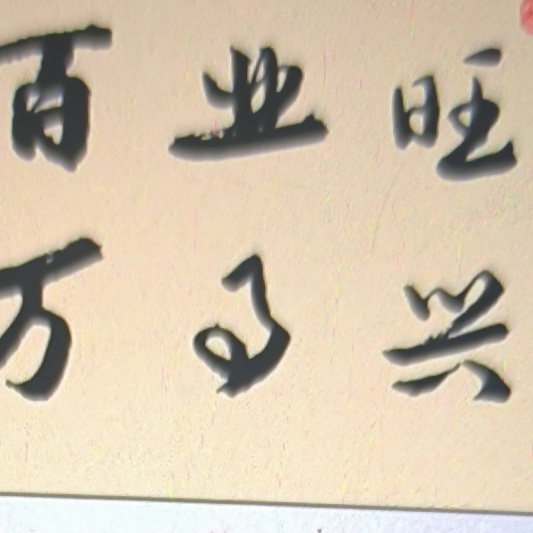 百业旺
万事兴